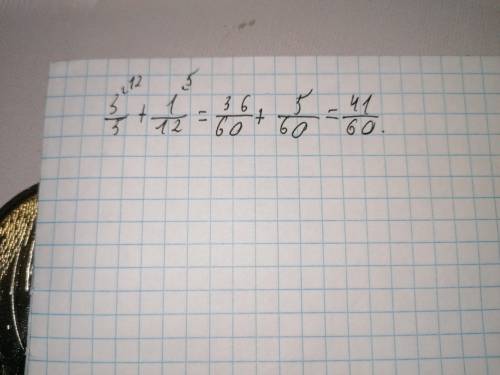 3/5 ^12 + 1/12 ^5 = 36/60 + 5/60 = 41/60.